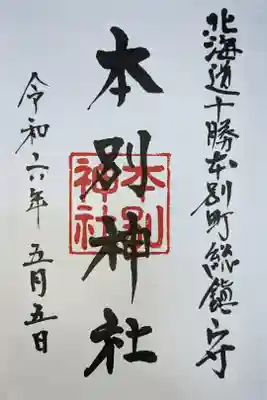 北海道十勝本別町総鎮守
本別神社
本別
神社
令和六年五月五日